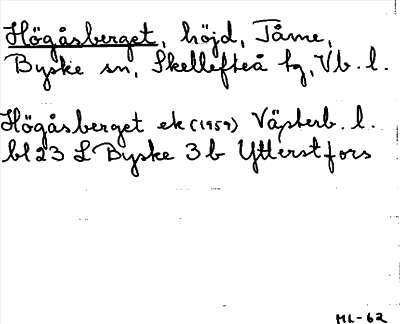 Högåsberget, höjd, Tåme,
Byske sn, Skellefteå tg, Vb. l.
Högåsberget ek (1959) Västerb. l.
bl 23 L Byske 3b Ytterstfors
ML-62